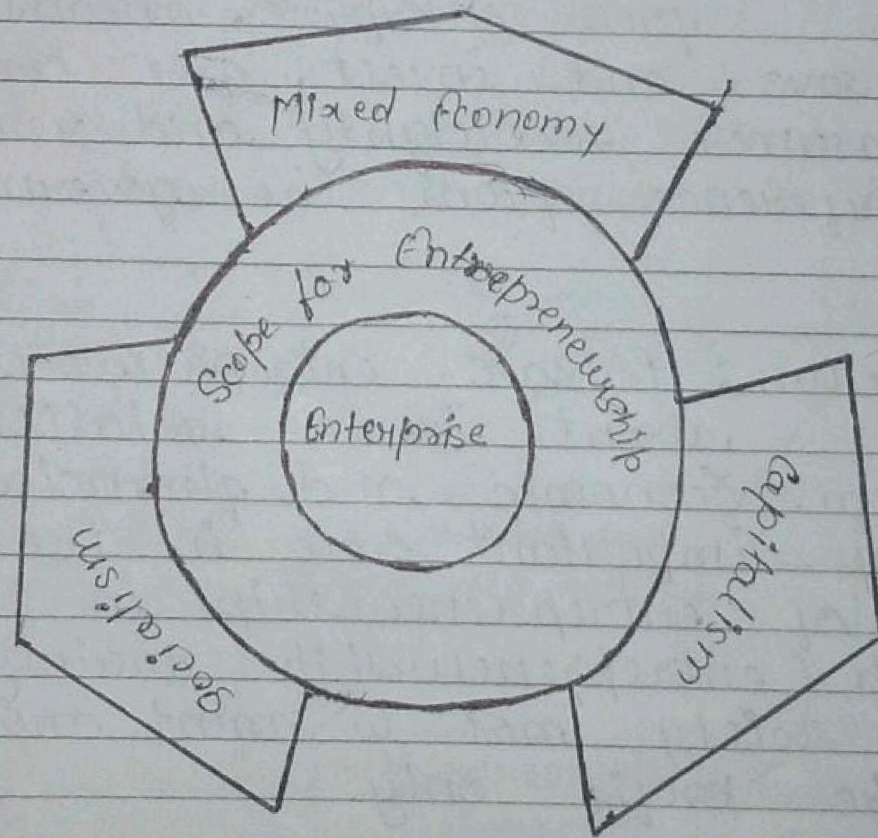 Mixed Economy
Scope for Entrepreneurship
Enterprise
Capitalism
Socialism